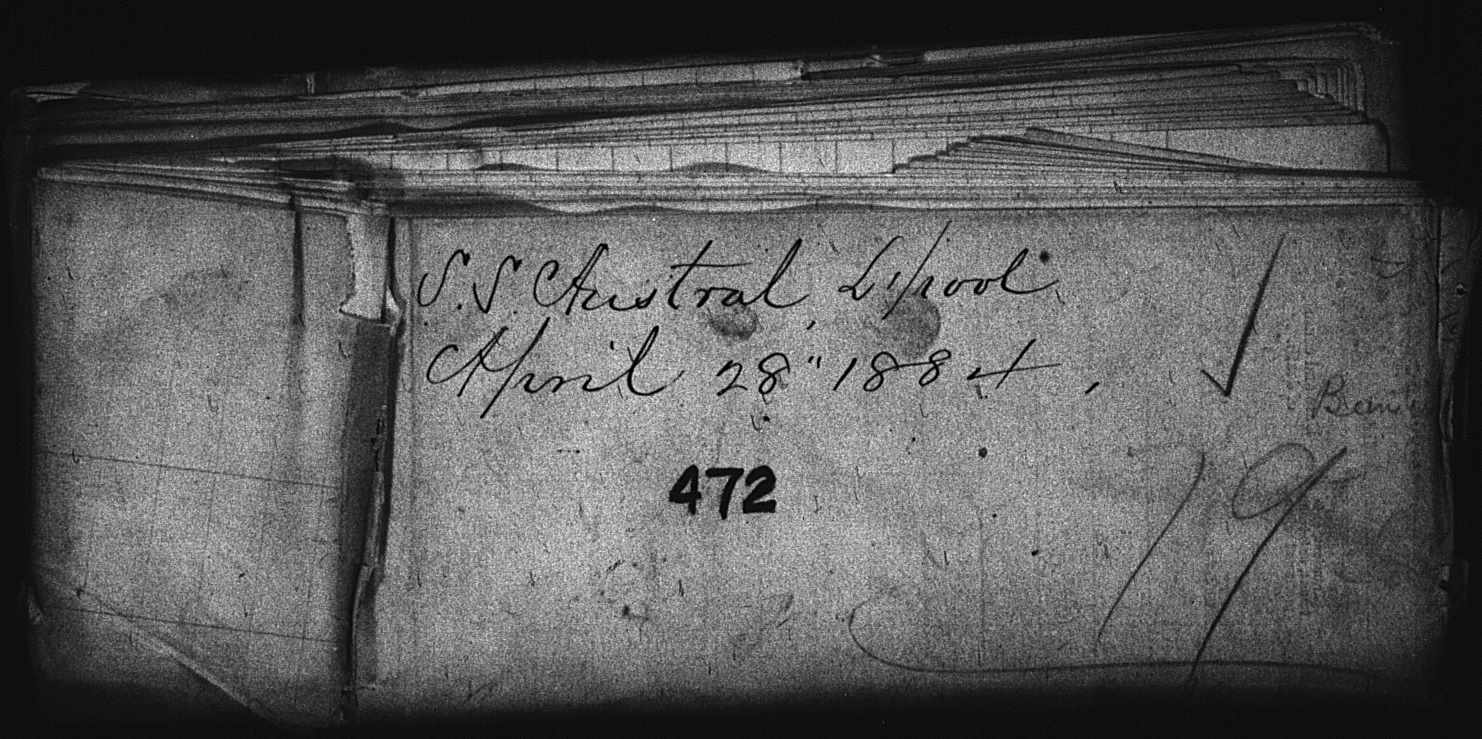 S.S. Austral, L'pool
April 28" 1884,
472
19